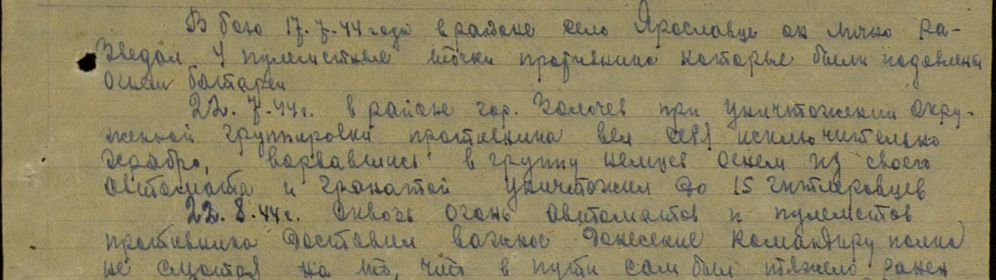 В бою 17.7.44 года в районе село Ярославце он лично ра-
зведал 4 пулеметные точки противника которые были подавлены
огнем батареи
22.7.44г. в районе гор. Золочев при уничтожении окру-
женной группировки противника вел себя исключительно
храбро, ворвавшись в группу немцев огнем из своего
автомата и гранатой уничтожил до 15 гитлеровцев
22.8.44г. сквозь огонь автоматов и пулеметов
противника доставил важное донесение командиру полка
не смотря на то, что в пути сам был тяжело ранен